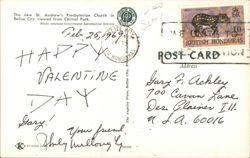 The new St. Andrew's Presbyterian Church in
Belize City viewed from Central Park.
Feb. 25, 1969
HAPPY
VALENTINE
DAY
Gary!
Your friend
BRITISH HONDURAS
POST CARD
Address
Gary F. Ashley
700 Cavan Lane
Des Plaines Ill.
U.S.A. 60016